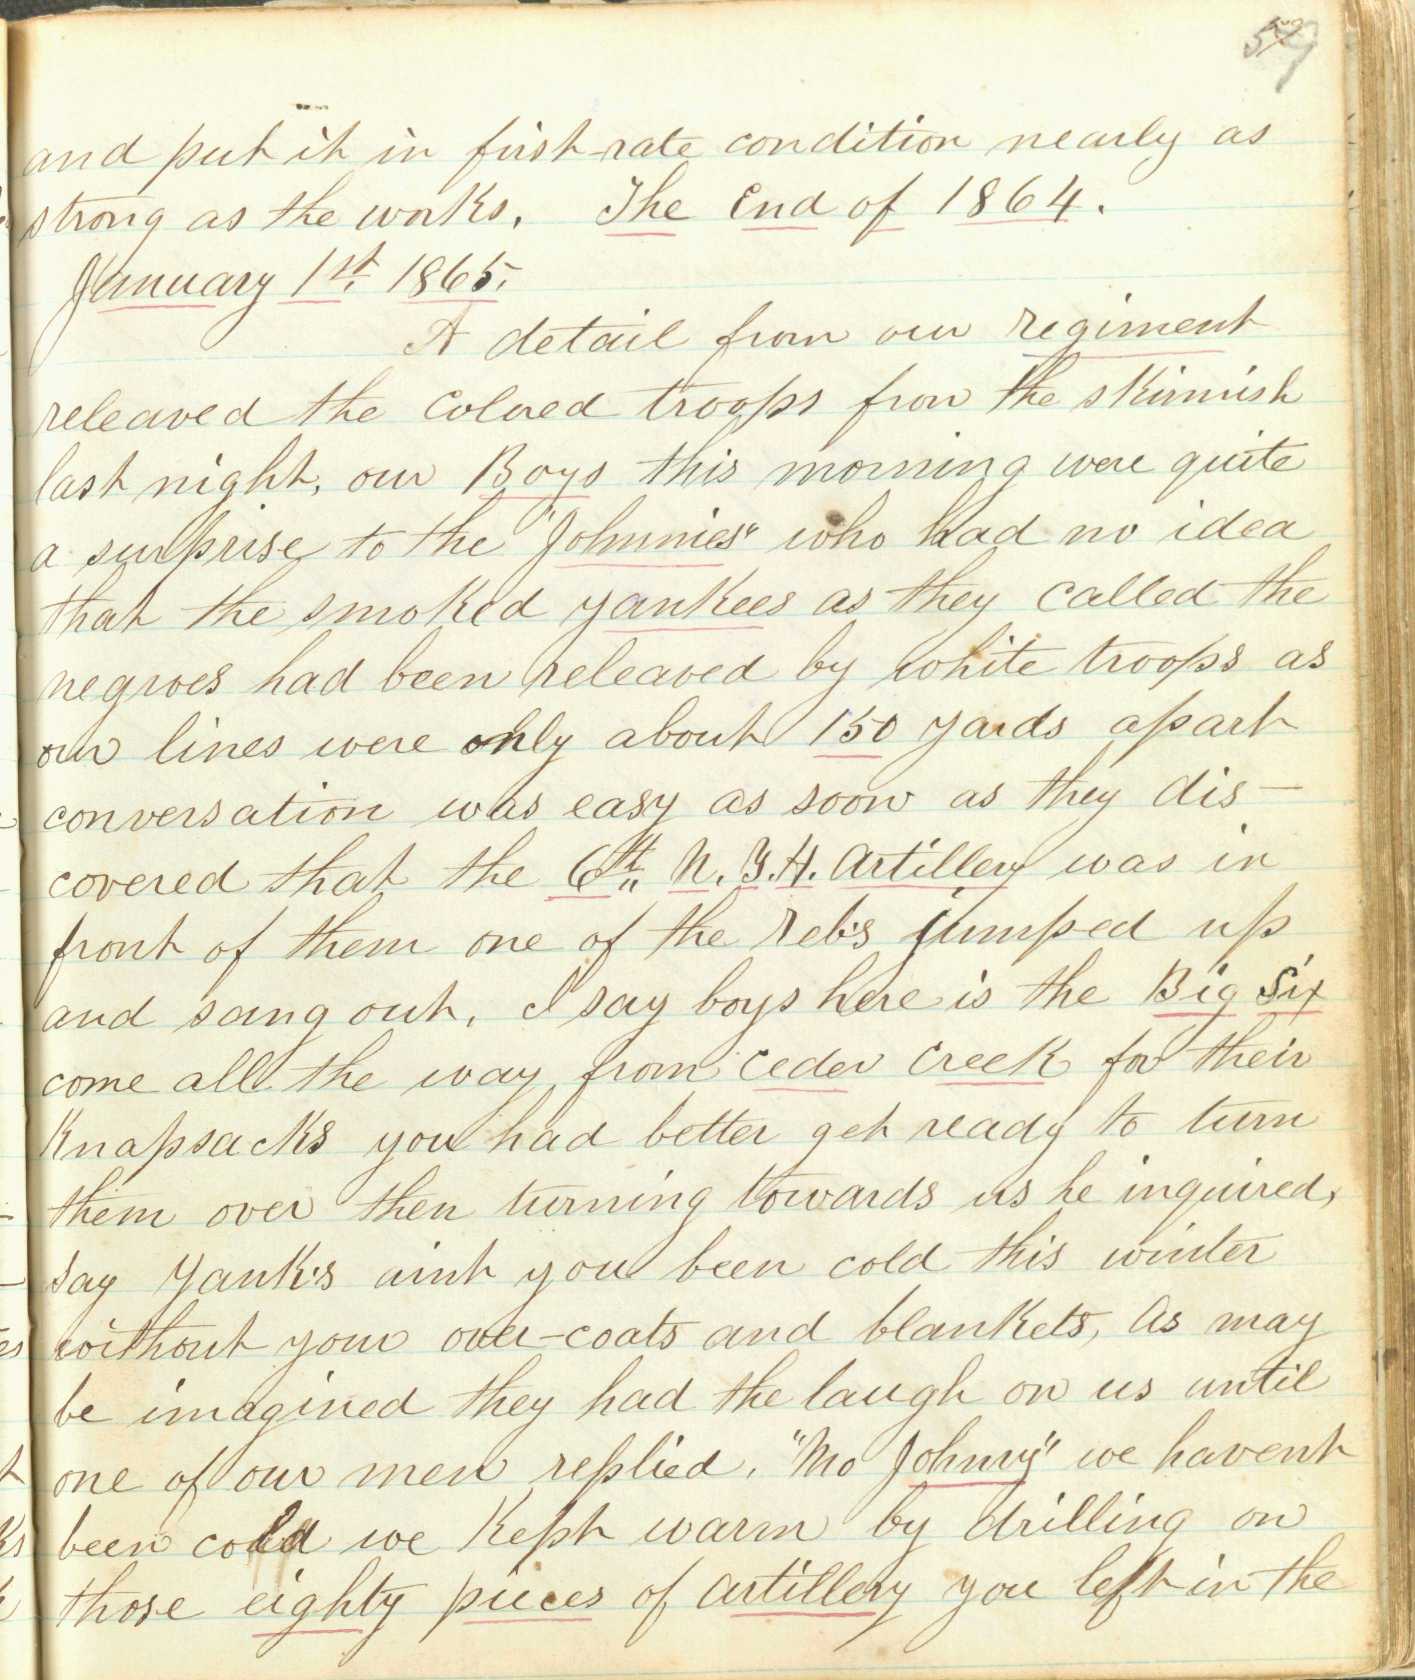 and put it in first-rate condition nearly as
strong as the works. The End of 1864.
January 1st. 1865.
A detail from our regiment
releaved the Colored troops from the skirmish
last night, our Boys this morning were quite
a surprise to the "Johnnies" who had no idea
that the smoked yankees as they called the
negroes had been releaved by white troops as
our lines were only about 150 yards apart
conversation was easy as soon as they dis-
covered that the 6th N.Y.H. Artillery was in
front of them one of the Reb's jumped up
and sang out, I say boys here is the Big Six
come all the way from Ceder Creek for their
Knapsacks you had better get ready to turn
them over then turning towards us he inquired,
say Yank's aint you been cold this winter
without your over-coats and blankets, As may
be imagined they had the laugh on us until
one of our men replied, "No Johnny" we havent
been cold we Kept warm by drilling on
those eighty pieces of artillery you left in the